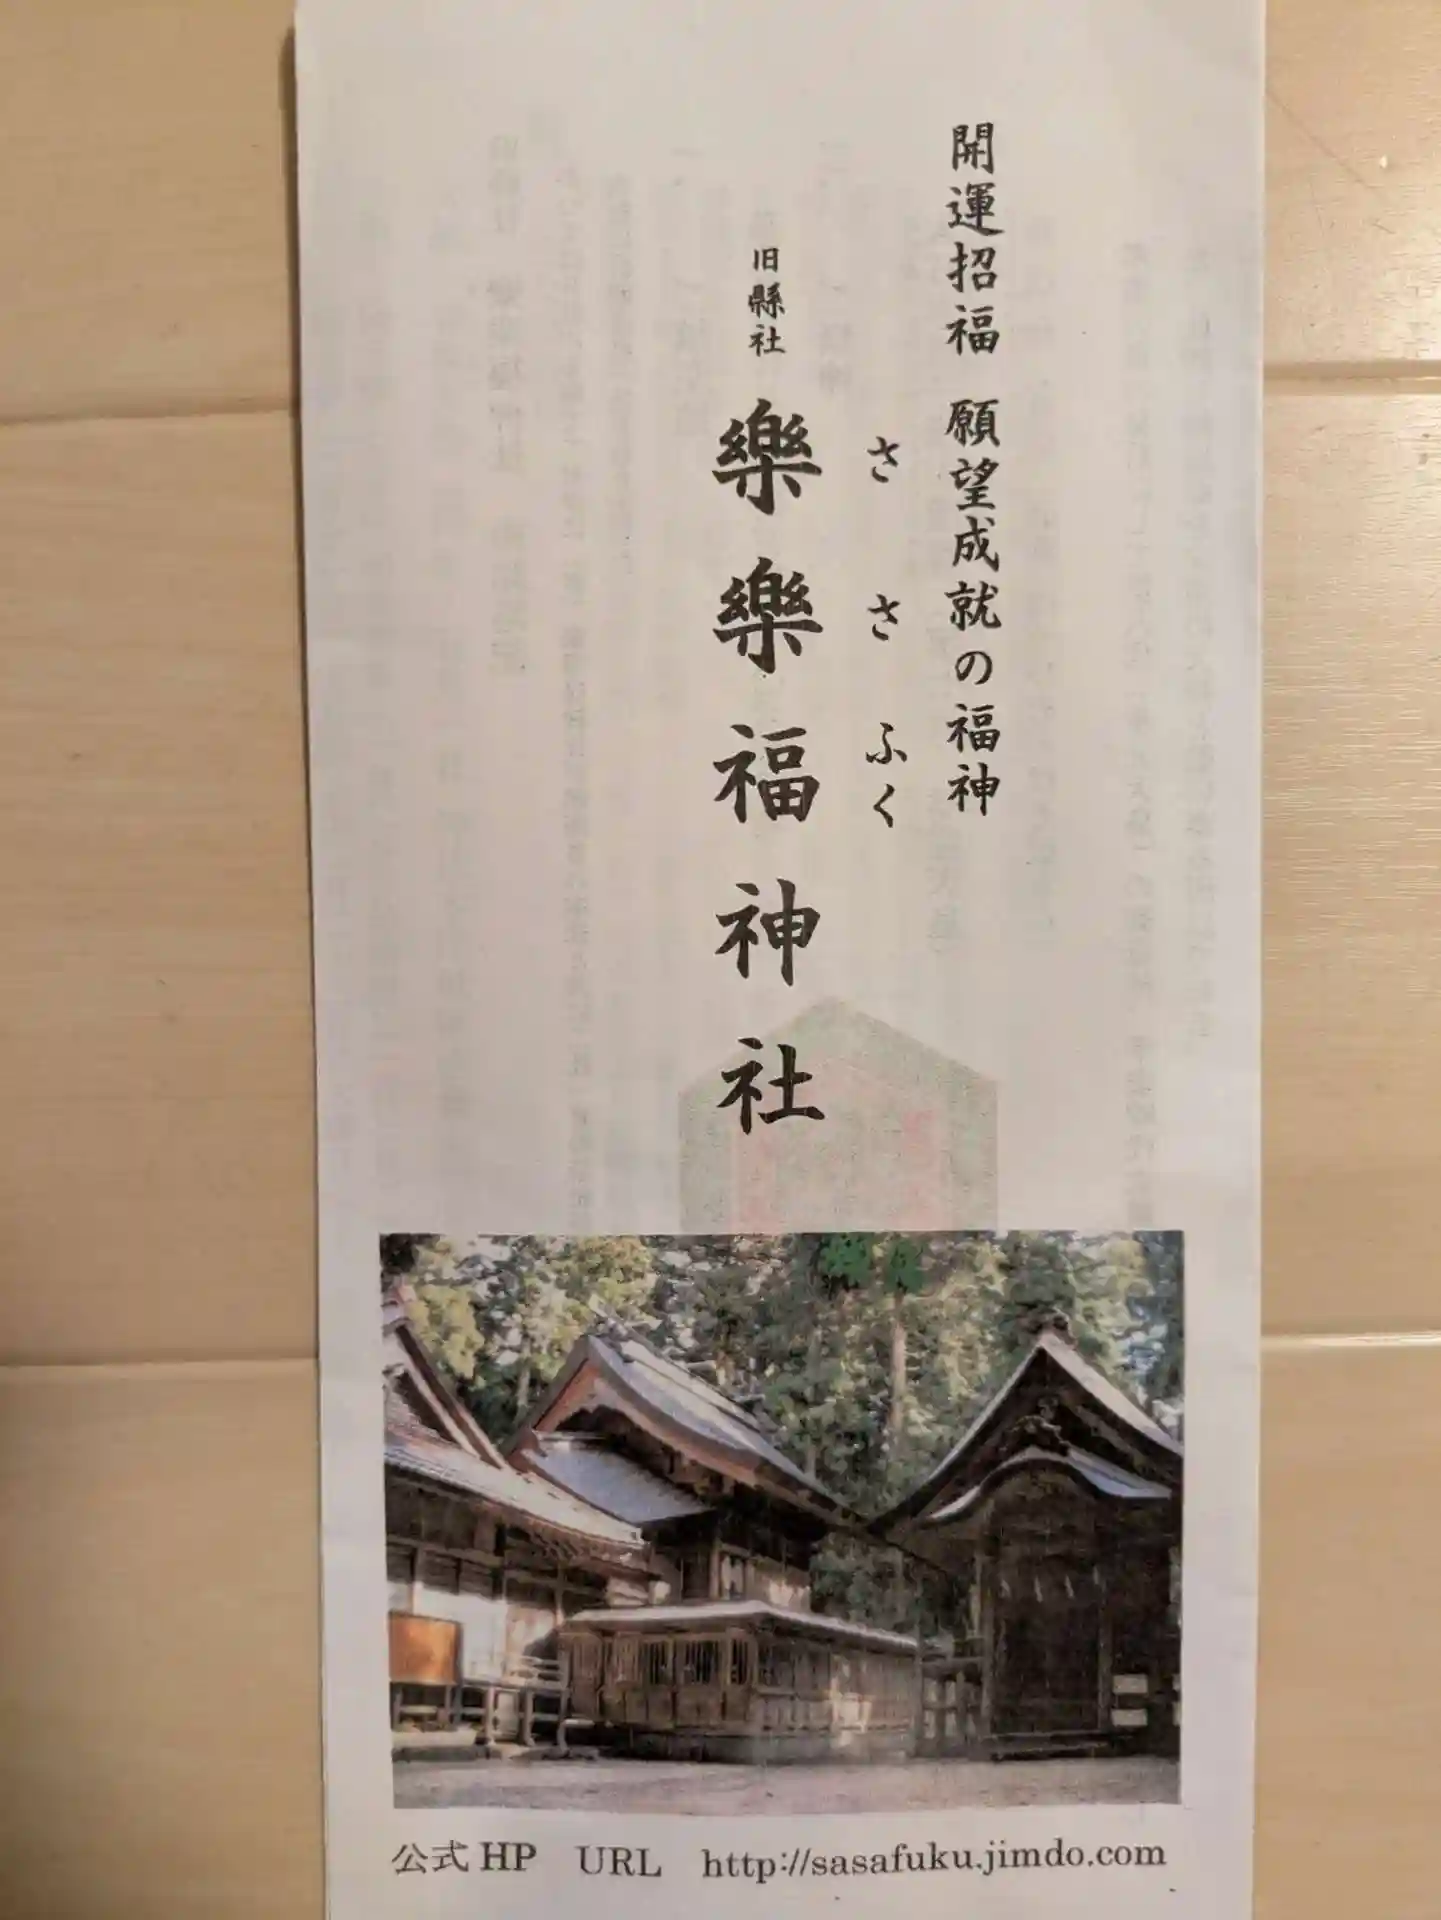 開運招福 願望成就の福神
さ さ ふく
旧縣社
樂樂福神社
公式HP URL http://sasafuku.jimdo.com